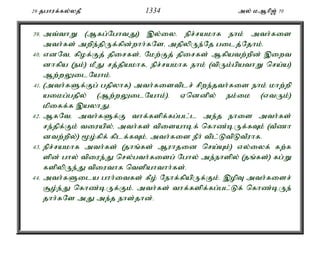 29 தபாரக்கல்லதீ 1334 அல் மஆரிஜ் 70
39. அவ்வாறு (ஆகப்போவது) இல்லை. நிச்சயமாக நாம் அவர்களை
அவர்கள் அறிந்திருக்கின்றார்களே, அதிலிருந்தே படைத்தோம்.
40. எனவே, கிழக்குத் திசைகள், மேற்குத் திசைகள் ஆகியவற்றின் இறைவ
னாகிய (நம்) மீது சத்தியமாக, நிச்சயமாக நாம் (விரும்பியவாறு செய்ய)
ஆற்றலுடையோம்.
41. (அவர்களுக்குப் பதிலாக) அவர்களைவிடச் சிறந்தவர்களை நாம் மாற்றி
யமைப்பதில் (ஆற்றலுடையோம்). ஏனெனில் நம்மை (எவரும்)
மிகைக்க இயலாது.
42. ஆகவே, அவர்களுக்கு வாக்களிக்கப்பட்ட அந்த நாளை அவர்கள்
சந்திக்கும் வரையில், அவர்கள் விளையாடிக் கொண்டிருக்கவும் (வீணா
னவற்றில்) மூழ்கிக் கிடக்கவும், அவர்களை நீர் விட்டுவிடுவீராக.
43. நிச்சயமாக அவர்கள் (தாங்கள் ஆராதனை செய்யும்) எல்லைக் கற்க
ளின் பால் விரைந்து செல்பவர்களைப் போல் அந்நாளில் (தங்கள்) கப்று
களிலிருந்து விரைவாக வெளியாவார்கள்.
44. அவர்களுடைய பார்வைகள் கீழ் நோக்கியிருக்கும். இழிவு அவர்களைச்
சூழ்ந்து கொண்டிருக்கும். அவர்கள் வாக்களிக்கப்பட்டுக் கொண்டிருந்
தார்களே அது அந்த நாள்தான்.